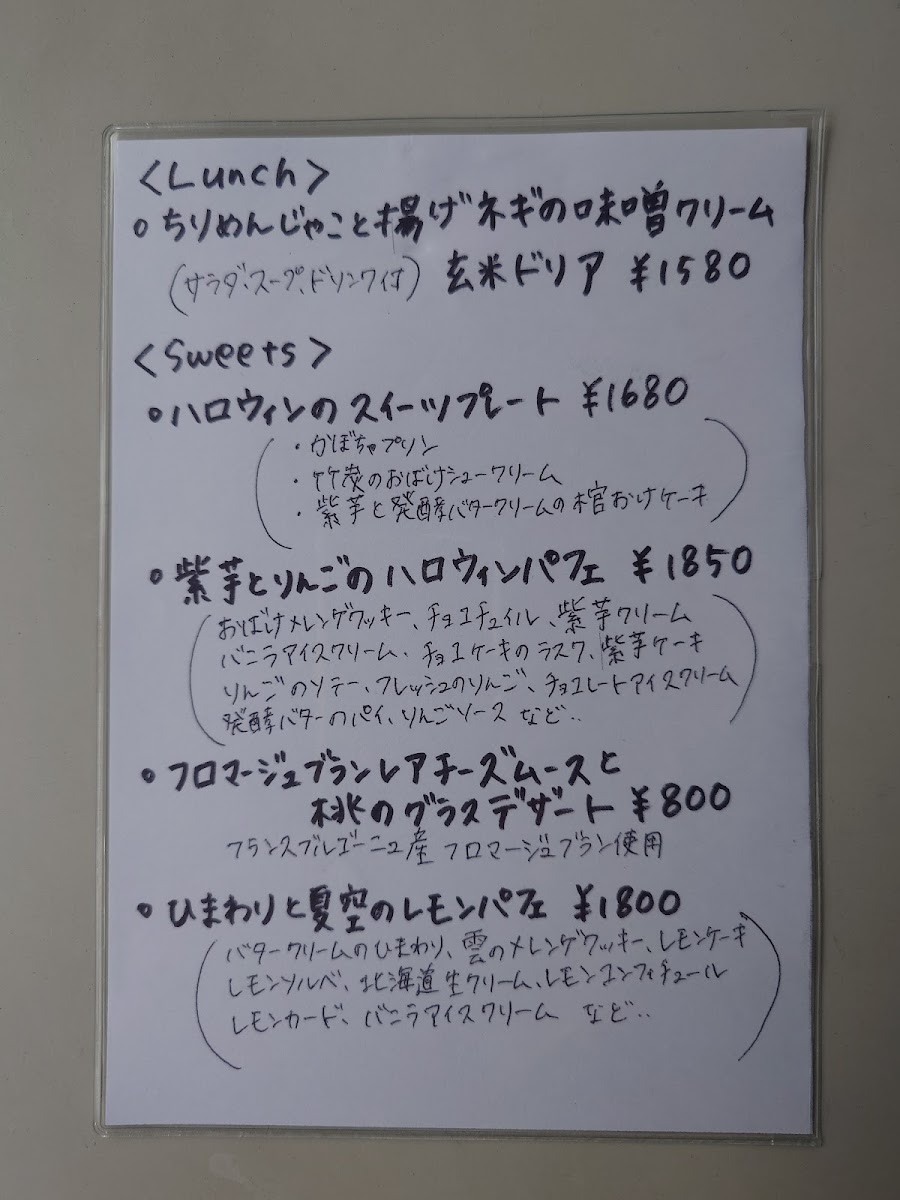 <Lunch>
• ちりめんじゃこと揚げネギの味噌クリーム
(サラダ、スープ、ドリンク付) 玄米ドリア ¥1580
<Sweets>
• ハロウィンのスイーツプレート ¥1680
・かぼちゃプリン
・竹炭のおばけシュークリーム
・紫芋と発酵バタークリームの棺おけケーキ
• 紫芋とりんごのハロウィンパフェ ¥1850
おばけメレンゲクッキー、チョコチュイル、紫芋クリーム
バニラアイスクリーム、チョコケーキのラスク、紫芋ケーキ
りんごのソテー、フレッシュのりんご、チョコレートアイスクリーム
発酵バターのパイ、りんごソース など..
• フロマージュブランレアチーズムースと
桃のグラスデザート ¥800
フランスブルゴーニュ産 フロマージュブラン使用
• ひまわりと夏空のレモンパフェ ¥1800
バタークリームのひまわり、雲のメレンゲクッキー、レモンケーキ
レモンソルベ、北海道生クリーム、レモンコンフィチュール
レモンカード、バニラアイスクリーム など..